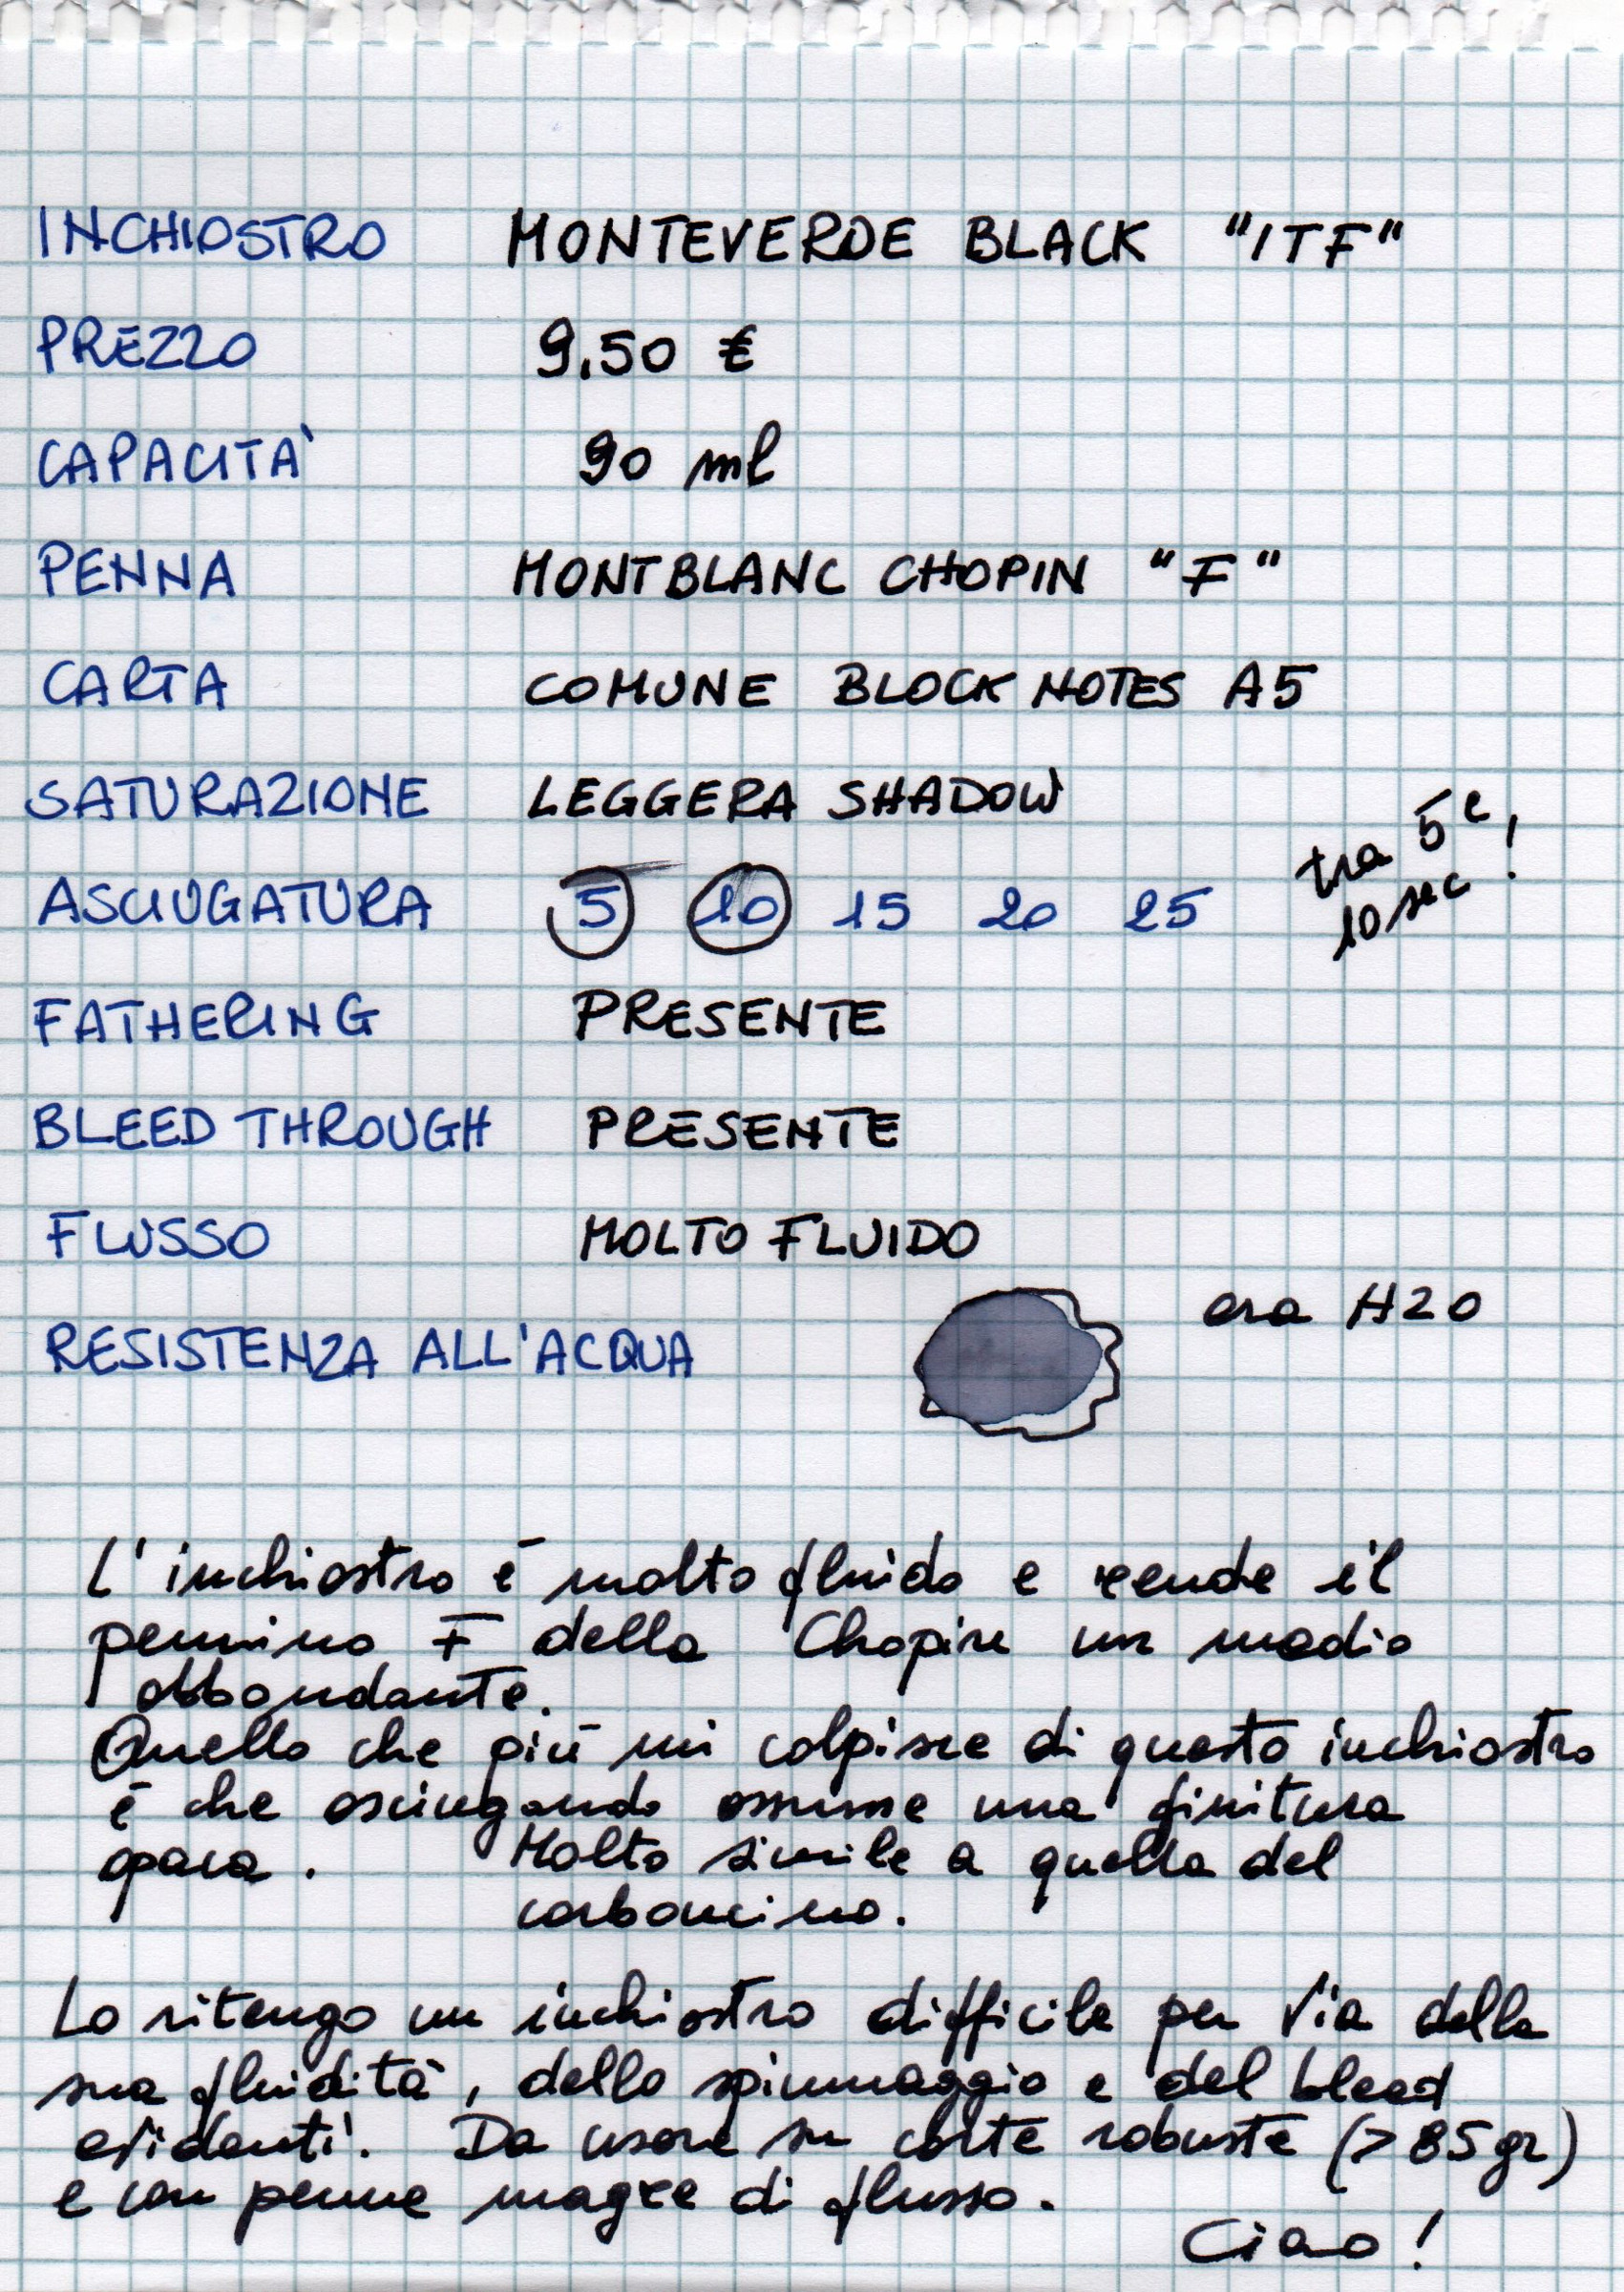 INCHIOSTRO MONTEVERDE BLACK "ITF"
PREZZO 9.50 €
CAPACITA' 90 ml
PENNA MONTBLANC CHOPIN "F"
CARTA COMUNE BLOCK NOTES A5
SATURAZIONE LEGGERA SHADOW
ASCIUGATURA 5 10 15 20 25 tra 5 e
10 sec !
FATHERING PRESENTE
BLEED THROUGH PRESENTE
FLUSSO MOLTO FLUIDO
RESISTENZA ALL'ACQUA ora H2O
L'inchiostro è molto fluido e rende il
pennino F della Chopin un medio
abbondante.
Quello che più mi colpisce di questo inchiostro
è che asciugando assume una finitura
opaca. Molto simile a quella del
carboncino.
Lo ritengo un inchiostro difficile per via della
sua fluidità, dello spiumaggio e del bleed
evidenti. Da usare su carte robuste (>85gr)
e con penne magre di flusso.
Ciao!